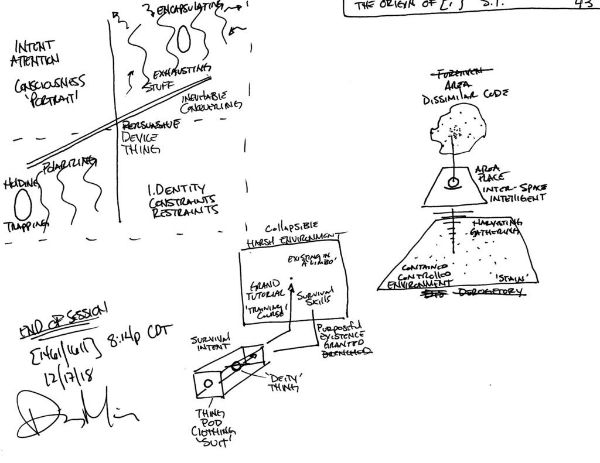 THE ORIGIN OF [,] S.I. 43
INTENT
ATTENTION
CONSCIOUSNESS
'PORTRAIT'
ENCAPSULATING
EXHAUSTING
STUFF
INEVITABLE
CONQUERING
PERSUASIVE
DEVICE
THING
POLARIZING
HOLDING
TRAPPING
I.DENTITY
CONSTRAINTS
RESTRAINTS
AREA
DISSIMILAR CODE
AREA
PLACE
INTER-SPACE
INTELLIGENT
HARVESTING
GATHERING
CONTAINED
CONTROLLED
ENVIRONMENT
'STAIN'
DEROGETORY
COLLAPSIBLE
HARSH ENVIRONMENT
EXISTING IN
A 'LIMBO'
GRAND
TUTORIAL
'TRAINING'
COURSE
SURVIVAL
SKILLS
PURPOSEFUL
EXISTENCE
GRANTED
SURVIVAL
INTENT
'DEITY'
THING
THING
POD
CLOTHING
'SUIT'
END OF SESSION
[1461/1611] 8:14p CDT
12/17/18